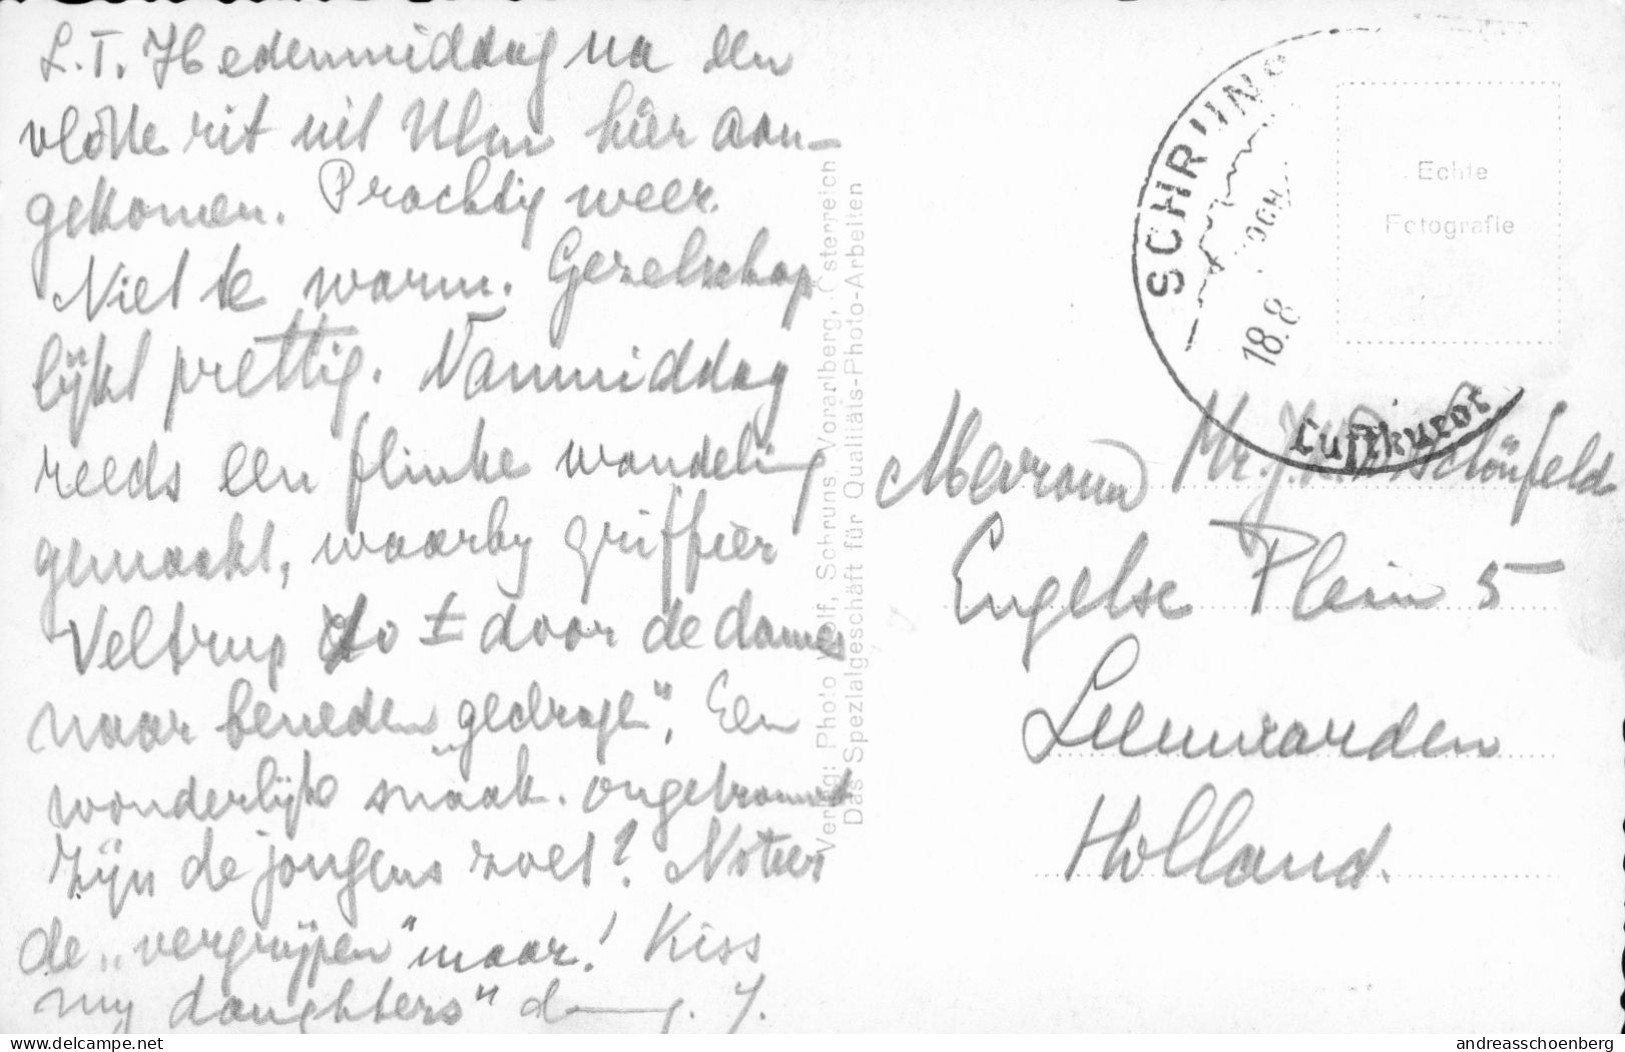 L.T. Hedenmiddag na een
vlotte rit uit Ulm hier aan-
gekomen. Prachtig weer.
Niet te warm. Gezelschap
lijkt prettig. Vanmiddag
reeds een flinke wandeling
gemaakt, waarby griffier
Veltrup ± door de dames
naar beneden „gedragen". Een
wonderlijke snaak. Ongetrouwd
Zijn de jongens zoet? Noteer
de „vergrijpen" maar! Kiss
my daughters" J.
Verlag: Photo Wolf, Schruns, Vorarlberg, Österreich
Das Spezialgeschäft für Qualitäts-Photo-Arbeiten
SCHRUNS
18.8
Luftkurort
Echte
Fotografie
Mevrouw Mr. Schönfeld
Engelse Plein 5
Leeuwarden
Holland.
delcampe.net
andreasschoenberg